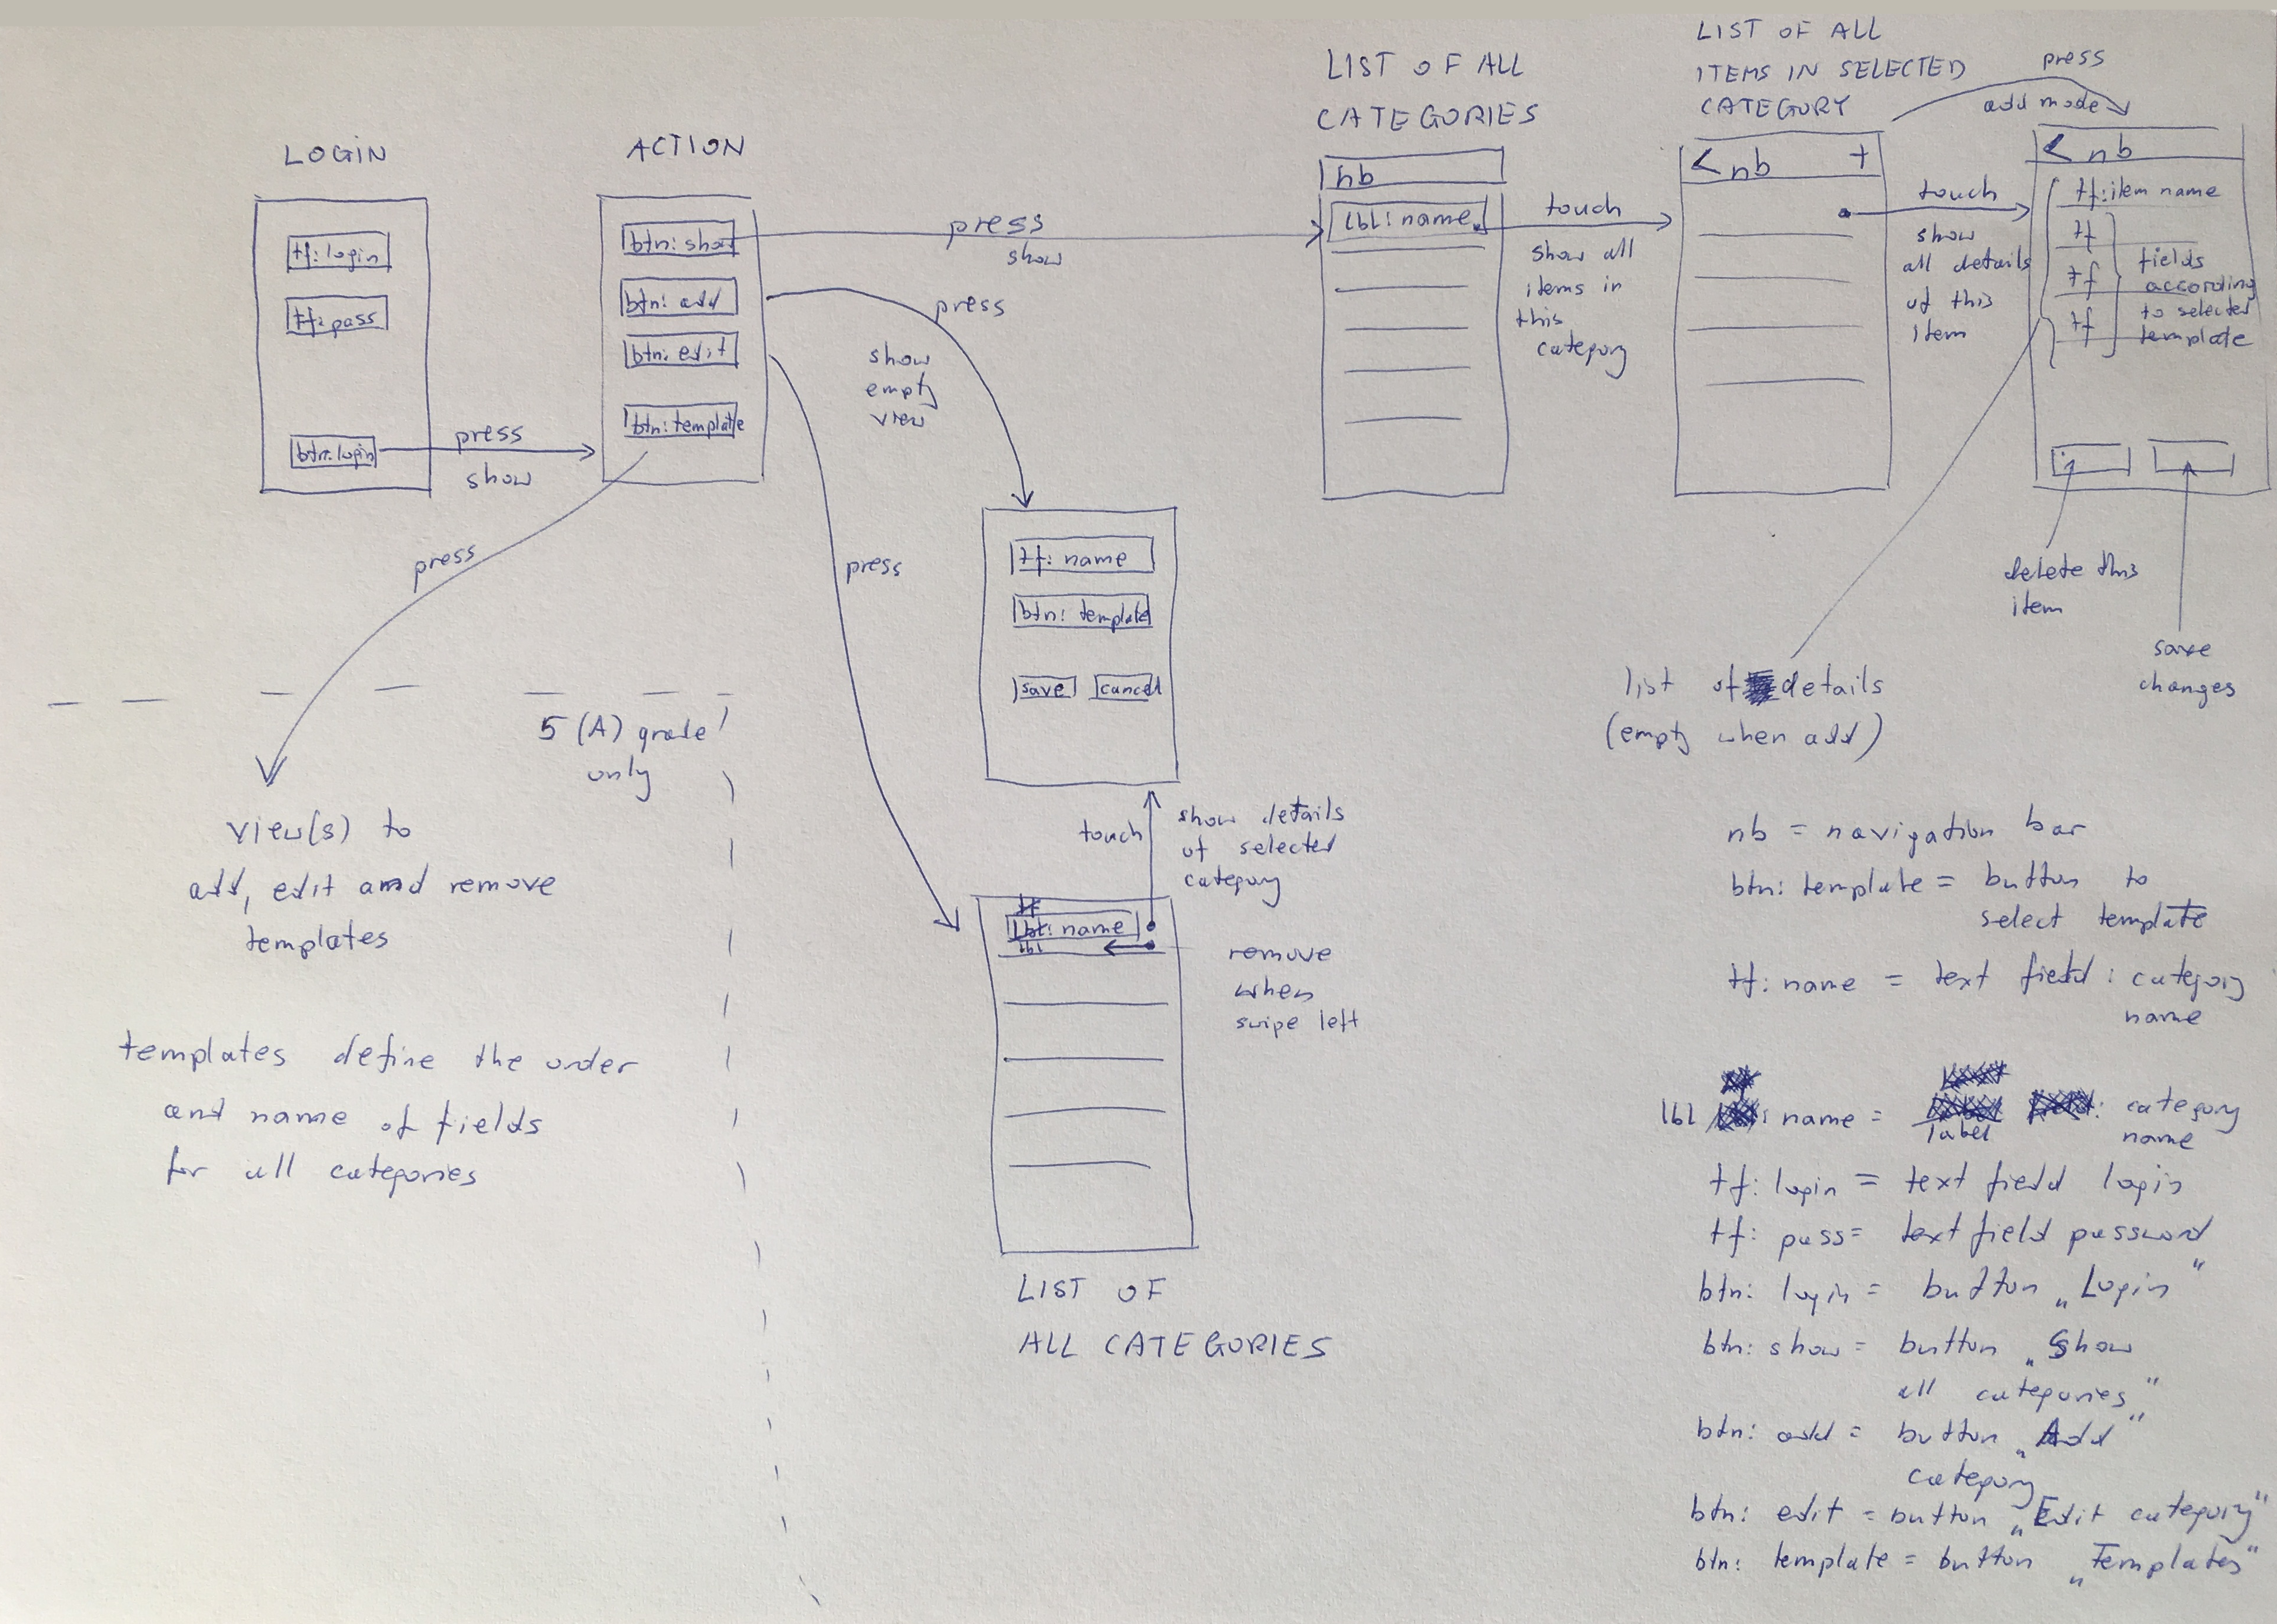 LOGIN
tf: login
tf: pass
btn: login
press
show
ACTION
btn: show
btn: add
btn: edit
btn: template
press
show
press
show
empty
view
press
press
LIST OF ALL
CATEGORIES
nb
lbl: name
touch
show all
items in
this
category
LIST OF ALL
ITEMS IN SELECTED
CATEGORY
< nb +
press
add mode
touch
show
all details
of this
item
< nb
tf: item name
tf
tf
tf
fields
according
to selected
template
delete this
item
save
changes
list of details
(empty when add)
tf: name
btn: template
save cancel
touch
show details
of selected
category
tf
lbl: name
lbl
remove
when
swipe left
LIST OF
ALL CATEGORIES
5 (A) grade
only
view(s) to
add, edit and remove
templates
templates define the order
and name of fields
for all categories
nb = navigation bar
btn: template = button to
select template
tf: name = text field: category
name
lbl : name = label : category
name
tf: login = text field login
tf: pass = text field password
btn: login = button „Login"
btn: show = button „Show
all categories"
btn: add = button „Add"
category
btn: edit = button „Edit category"
btn: template = button „Templates"